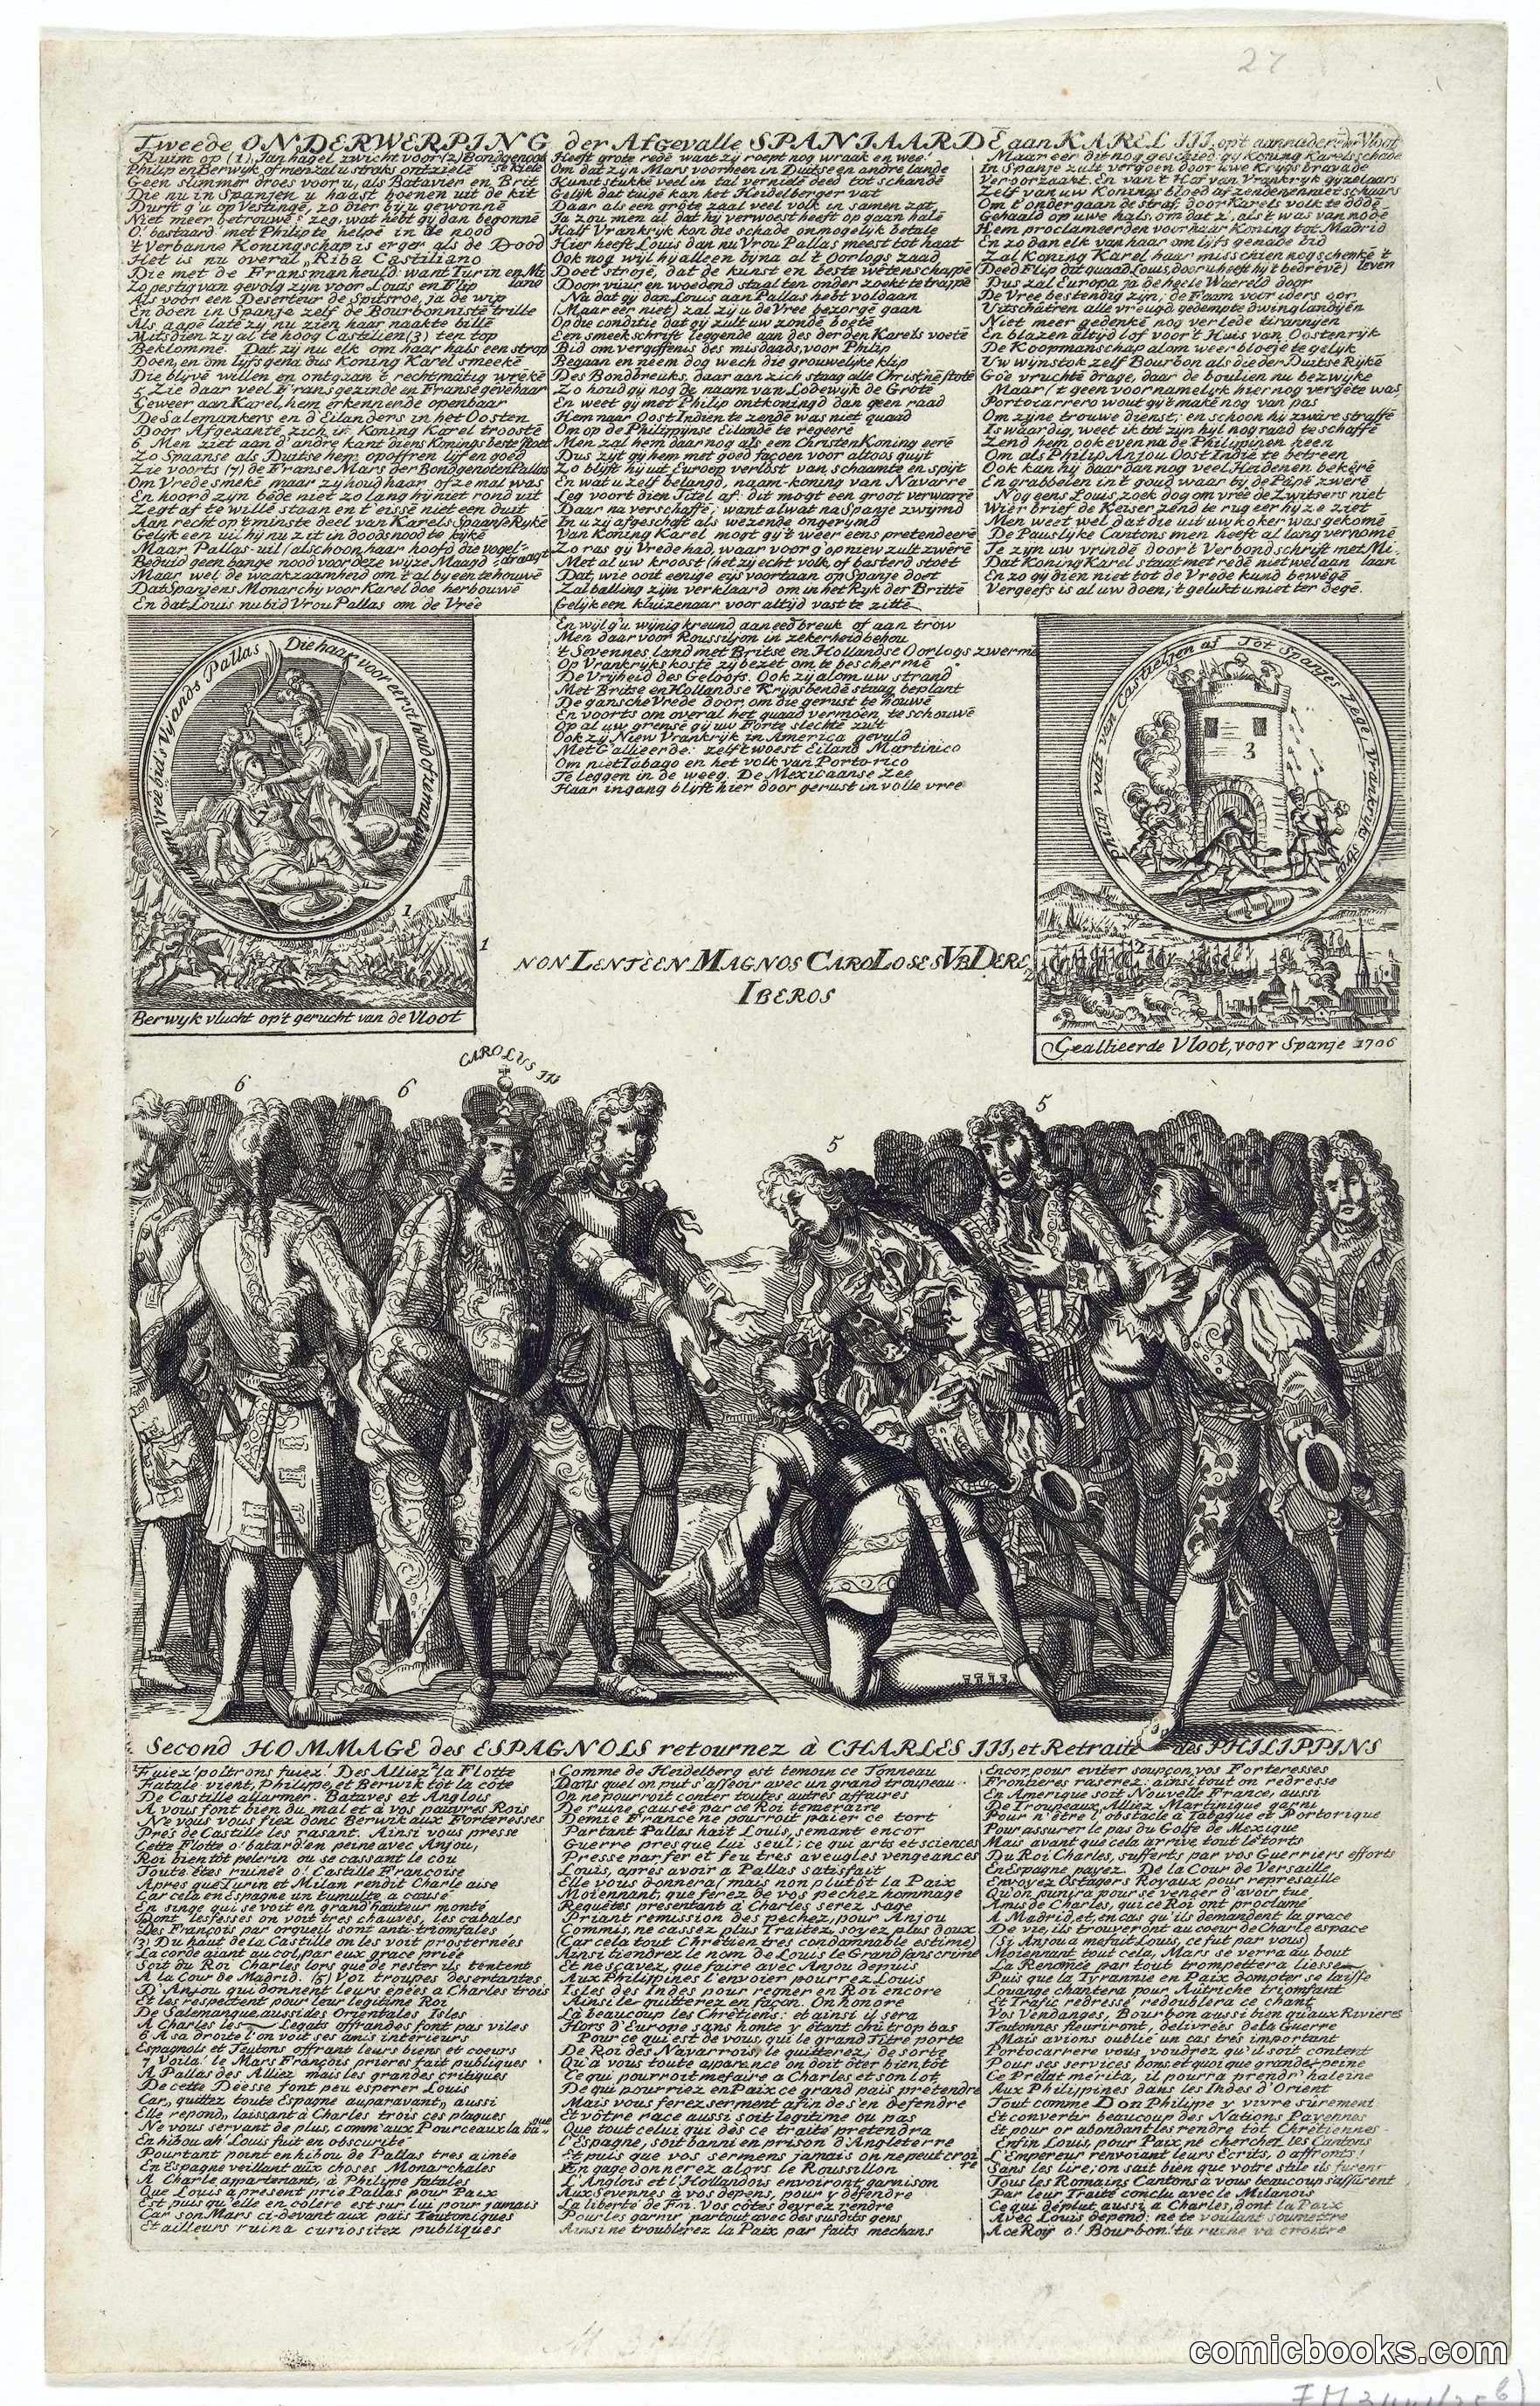 27
Tweede ONDERWERPING der Afgevalle SPANIAARDE aan KAREL III, op't aannaderen der Vloot
Ruim op (1), Jan hagel zwicht voor (2) Bondgenoots
Philip en Berwyk, of men zal u straks ontziele
Geen slimmer droes voor u, als Batavier en Brit
Die nu in Spanjen u haast boenen uit de kit
Durft g'u op Vestinge, zo dier bij u gewonne
Niet meer betrouwe? zeg, wat hebt gy dan begonne
O! bastaard met Philip te helpe in de nood
't Verbanne Koningschap is erger als de Dood
Het is nu overal, Riba Castiliano
Die met de Fransman heuld: want Turin en Milano
Zo pestig van gevolg zijn voor Louis en Flip
Als voor een Deserteur de Spitsroe, ja de wip
En doen in Spanje zelf de Bourbonniste trille
Als aape late zy nu zien haar naakte bille
Mitsdien zy al te hoog Castilien (3) ten top
Beklomme. Dat zij nu elk om haar hals een strop
Doen, en om lijfsgena dus Koning Karel smeeke
Die blyve willen en ontgaan 't rechtmatig wreke
5 Zie daar veel Fransgezinde en Franse gewenaar
Geweer aan Karel, hem erkennende openbaar
De Salemankers en d'Eilanders in het Oosten
Door Afgezante zich in Koning Karel trooste
6 Men ziet aan d'andre kant diens Konings beste stoet
Zo Spaanse als Duitse hem opoffren lijf en goed
Zie voorts (7) de Franse Mars der Bondgenoten Pallas
Om Vrede smeke maar zy houd haar of ze mal was
En hoord zijn bede niet zo lang hij niet rond uit
Zegt af te wille staan en t' eisse niet een duit
Aan recht op 't minste deel van Karels Spaanse Ryke
Gelyk een uil hy nu zit in doodsnood te kijke
Maar, Pallas-uil (alschoon haar hoofd die vogel draagt
Beduid geen bange nood voor deze wijze Maagd
Maar wel de waakzaamheid om 't al by een te houwe
Dat Spanjens Monarchy voor Karel doe herbouwe
En dat Louis nu bid Vrou Pallas om de Vree
Heeft grote rede want zij roept nog wraak en wee!
Om dat zijn Mars voorheen in Duitse en andre lande
Kunststukke veel in tal verniele deed tot schande
Gelyk dat tuige kan het Heidelberger vat
Daar als een grote zaal veel volk in samen zat
Ja zou men al dat hij verwoest heeft op gaan hale
Half Vrankryk kon die schade onmogelyk betale
Hier heeft Louis dan nu Vrou Pallas meest tot haat
Ook nog wijl hy alleen byna al 't Oorlogs zaad
Doet stroje, dat de kunst en beste wetenschappe
Door vuur en woedend staal ten onder zoekt te trappe
Na dat gy dan Louis aan Pallas hebt voldaan
(Maar eer niet) zal zij u de Vree bezorge gaan
Op die conditie dat gij zult uw zonde boete
Een smeekschrift leggende aan des derden Karels voete
Bid om vergiffenis des misdaads, voor Philip
Begaan en neem dog wech die grouwelyke klip
Des Bondbreuks, daar aan zich staag alle Christne stote
Zo houd gij nog de naam van Lodewijk de Grote
En weet gij met Philip ontkoningd dan geen raad
Hem naar Oost Indien te zende was niet quaad
Om op de Philippynse Eilande te regeere
Men zal hem daar nog als een Christen Koning eere
Dus zijt gy hem met goed façoen voor altoos quijt
Zo blijft hij uit Europ verlost van schaamte en spijt
En wat u zelf belangd, naam-koning van Navarre
Leg voort dien Titel af: dit mogt een groot verwarre
Daar na verschaffe; want alwat na Spanje zwijmd
In u zij afgeschaft als wezende ongerijmd
Van Koning Karel mogt gij 't weer eens pretendeere
Zo ras gij Vrede had, waar voor g'op niew zult zwere
Met al uw kroost (het zij echt volk of basterd stoet
Dat, wie ooit eenige eijs voortaan op Spanje doet
Zal balling zijn verklaard om in het Ryk der Britte
Gelijk een kluizenaar voor altijd vast te zitte
En wijl g'u wijnig kreund aan eedbreuk of aan trow
Men daar voor Roussiljon in zekerheid behou
't Sevennes land met Britse en Hollandse Oorlogs zwerme
Op Vrankryks koste zij bezet om te bescherme
De Vrijheid des Geloofs. Ook zij alom uw strand
Met Britse en Hollandse Krijgsbende staag beplant
De gansche Vrede door om die gerust te houwe
En voorts om overal het quaad vermoen te schouwe
Op al uw grense gij uw Forte slechte zult
Ook zy Niew Vrankrijk in America gevuld
Met G'allieerde: zelf't woest Eiland Martinico
Om niet Tabago en het volk van Porto-rico
Te leggen in de weeg. De Mexicaanse Zee
Haar ingang blijft hier door gerust in volle vree
Maar eer dit nog geschied: gy Koning Karels schade
In Spanje zult vergoen door uwe Krijgs bravade
Veroorzaakt. En van 't Hof van Vrankryk gijzelaars
Zelf van uw Konings bloed afzenden en niet schaars
Om t' ondergaan de straf, door Karels volk te dode
Gehaald op uwe hals, om dat z', als 't was van node
Hem proclameerden voor haar Koning tot Madrid
En zo dan elk van haar om lijfs genade bid
Zal Koning Karel haar misschien nog schenke 't leven
(Deed Flip dit quaad Louis, door u heeft hy 't bedreve)
Dus zal Europa ja de heele Waereld door
De Vree bestendig zijn; de Faam voor iders oor
Uitschatren alle vreugd, gedempte dwinglandyen
Niet meer gedenke nog verlede tirannyen
En blazen altijd lof voor 't Huis van Oostenryk
De Koopmanschap alom weer bloeje te gelyk
Uw wijnstok zelf Bourbon als die der Duitse Ryke
Goe vruchte drage, daar de boulien nu bezwijke
Maar ('t geen voornamelyk hier nog vergete was)
Portocarrero wout gij't make nog van pas
Om zijne trouwe dienst; en schoon hij zware straffe
Is waardig, weet ik tot zijn hijl nog raad te schaffe
Zend hem ook even na de Philippinen heen
Om als Philip Anjou Oost Indie te betreen
Ook kan hij daar dan nog veel Heidenen bekere
En grabbelen in 't goud waar bij de Pape zwere
Nog eens Louis, zoek dog om vree de Zwitsers niet
Wier brief de Keiser zend te rug eer hij ze ziet
Men weet wel dat die uit uw koker was gekome
De Pauslijke Cantons men heeft al lang vernome
Te zijn uw vrinde door't Verbondschrift met Milaan
Dat Koning Karel staat met rede niet wel aan
En zo gij dien niet tot de Vrede kund bewege
Vergeefs is al uw doen; 't gelukt u niet ter dege.
Vree bied 's Vijands Pallas Die haar voor eerst houd of ze mal was
7
1
1
Berwyk vlucht op't gerucht van de Vloot
Philip valt van Castieljen af Tot Spanjes Zege, Vrankryks straf
3
2
2
Geallieerde Vloot, voor Spanje 1706
NON LENTE EN MAGNOS CAROLO SE SUBDERE
IBEROS
CAROLUS III
6
6
5
5
Second HOMMAGE des ESPAGNOLS retournez à CHARLES III, et Retraite des PHILIPPINS
Fuiez! poltrons fuiez! Des Alliez la Flotte
Fatale vient, Philippe, et Berwik tôt la côte
De Castille allarmer. Bataves et Anglois
A vous font bien du mal et à vos pauvres Rois
Ne vous vous fiez donc Berwik aux Forteresses
Près de Castille les rasant. Ainsi vous presse
Cette Flotte o! batard en peine avec Anjou,
Roi bientôt pelerin ou se cassant le cou
Toute êtes ruinée o! Castille Françoise
Apres que Turin et Milan rendit Charle aise
Car cela en Espagne un tumulte a causé
En singe qui se voit en grand hauteur monté
Dont les fesses on voit tres chauves, les cabales
Des François par orgueil sont anti-triomfales
(3) Du haut de la Castille on les voit prosternées
La corde aiant au col, par eux grace priée
Soit du Roi Charles lors que de rester ils tentent
A la Cour de Madrid. (5) Voi troupes desertantes
D'Anjou qui donnent leurs épées a Charles trois
Et les respectent pour leur legitime Roi
De Salemanque, aussi des Orientales Isles
A Charles les Legats offrandes font pas viles
6 A sa droite l'on voit ses amis intérieurs
Espagnols et Teutons offrant leurs biens et coeurs
7 Voilà! le Mars François prieres fait publiques
A Pallas des Alliez mais les grandes critiques
De cette Déesse font peu esperer Louis
Car, quittez toute Espagne auparavant, aussi
Elle repond, laissant à Charles trois ces plagues
Ne vous servant de plus, comm'aux Pourceaux la bague
En hibou ah! Louis fuit en obscurité
Pourtant point en hibou de Pallas tres aimée
En Espagne veillant aux choses Monarchales
A Charle appartenant, à Philippe fatales
Que Louis a present prie Pallas pour Paix
Est puis qu'elle en colere est sur lui pour jamais
Car son Mars ci-devant aux païs Teutoniques
Et ailleurs ruina curiositez publiques
Comme de Heidelberg est temoin ce Tonneau
Dans quel on put s'asseoir avec un grand troupeau
On ne pourroit conter toutes autres affaires
De ruine causée par ce Roi temeraire
Demie France ne pourroit paier ce tort
Partant Pallas haït Louis, semant encor
Guerre presque lui seul; ce qui arts et sciences
Presse par fer et feu tres aveugles vengeances
Louis, après avoir à Pallas satisfait
Elle vous donnera (mais non plûtôt la Paix
Moiennant, que ferez de vos pechez hommage
Requêtes presentant à Charles serez sage
Priant remission des pechez, pour Anjou
Commis, ne cassez plus Traitez, soyez plus doux
(Car cela tout Chrétien tres condamnable estime)
Ainsi tiendrez le nom de Louis le Grand sans crime
Et ne sçavez que faire avec Anjou depuis
Aux Philippines l'envoier pourrez Louis
Isles des Indes pour regner en Roi encore
Ainsi le quitterez en façon. On honore
Là beaucoup les Chrétiens: et ainsi il sera
Hors d'Europe sans honte y étant chi trop bas
Pour ce qui est de vous, qui le grand Titre porte
De Roi des Navarrois, le quitterez; de sorte
Qu'à vous toute apparence on doit ôter bientôt
Ce qui pourroit mefaire a Charles et son lot
De qui pourriez en Paix ce grand païs prétendre
Mais vous ferez serment afin de s'en defendre
Et vôtre race aussi soit legitime ou pas
Que tout celui qui dès ce traité pretendra
l'Espagne, soit banni en prison d'Angleterre
Et puis que vos sermens jamais on ne peut croire
En gage donnerez alors le Roussillon
L'Anglois et l'Hollandois environt garnison
Aux Sevennes à vos depens, pour y défendre
La liberté de Foi. Vos côtes devrez rendre
Pour les garnir partout avec des susdits gens
Ainsi ne troublerez la Paix par faits mechans
Encor, pour eviter soupçon, vos Forteresses
Frontieres raserez; ainsi tout on redresse
En Amerique soit Nouvelle France, aussi
De Troupeaux Alliez Martinique garni
Pour n'être l'obstacle à Tabague et Portorique
Pour assurer le pas du Golfe de Mexique
Mais avant que cela arrive tout le torts
Du Roi Charles, sufferts par vos Guerriers efforts
En Espagne payez. De la Cour de Versaille
Envoyez Ostagers Royaux pour represaille
Qu'on punira pour se venger d'avoir tué
Amis de Charles, qui ce Roi ont proclamé
A Madrid, et en cas qu'ils demandent la grace
De vie, ils trouveront au coeur de Charle espace
(Si Anjou a mefait Louis, ce fut par vous)
Moiennant tout cela, Mars se verra au bout
La Renomée par tout trompettera liesse
Puis que la Tyrannie en Paix dompter se laisse
Louange chantera pour Autriche triomfant
Et Trafic redressé redoublera ce chant
Vos Vendanges, Bourbon aussi bien qu'aux Rivieres
Teutonnes fleuriront, delivrées de la Guerre
Mais avions oublié un cas très important
Portocarrere vous, voudrez qu'il soit content
Pour ses services bons et quoi que grande peine
Ce Prelat mérita, il pourra prendr' haleine
Aux Philippines dans les Indes d'Orient
Tout comme Don Philippe y vivre sûrement
Et convertir beaucoup des Nations Payennes
Et pour or abondant les rendre tôt Chrétiennes
Enfin Louis, pour Paix ne cherchez les Cantons
L'Empereur renvoiant leurs Ecrits, o affronts!
Sans les lire; on sait bien que votre stile ils furent
Tous les Romains Cantons à vous beaucoup s'assurent
Par leur Traité conclu avec le Milanois
Ce qui déplut aussi a Charles, dont la Paix
Avec Louis depend: ne te voulant soumettre
A ce Roy o! Bourbon! ta ruine va croitre
comicbooks.com